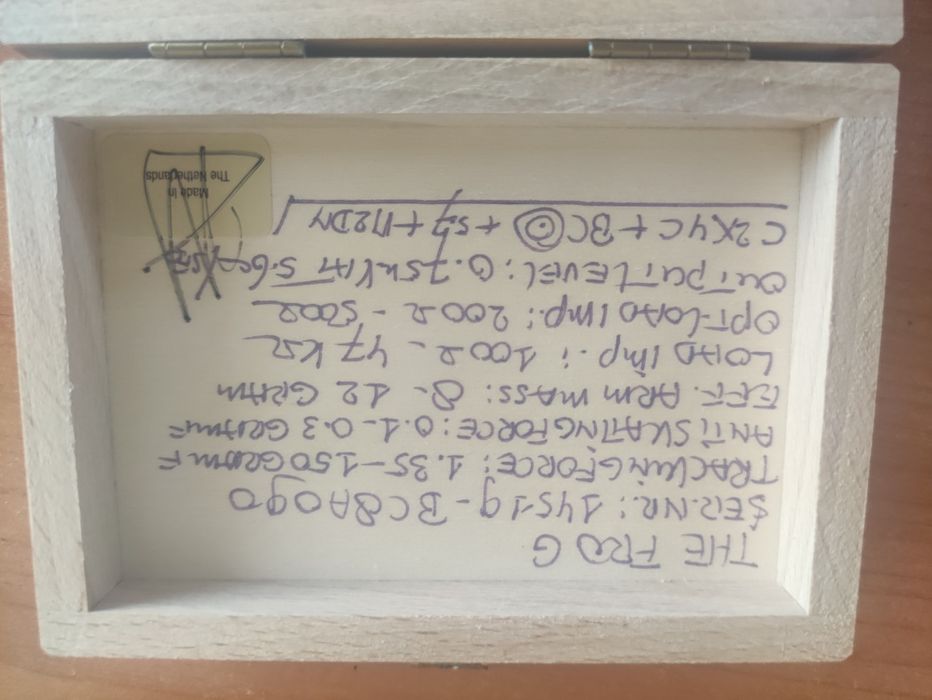 THE FROG
SER.NR: 14519-BC8A090
TRACKINGFORCE: 1.35-1.50GRAMF
ANTISKATINGFORCE: 0.1-0.3 GRAMF
EFF. ARM MASS: 8-12 GRAM
LOAD IMP.: 100Ω - 47 KΩ
OPT-LOAD IMP: 200Ω - 500Ω
OUTPUTLEVEL: 0.75
C2X4C + BC
Made in
The Netherlands